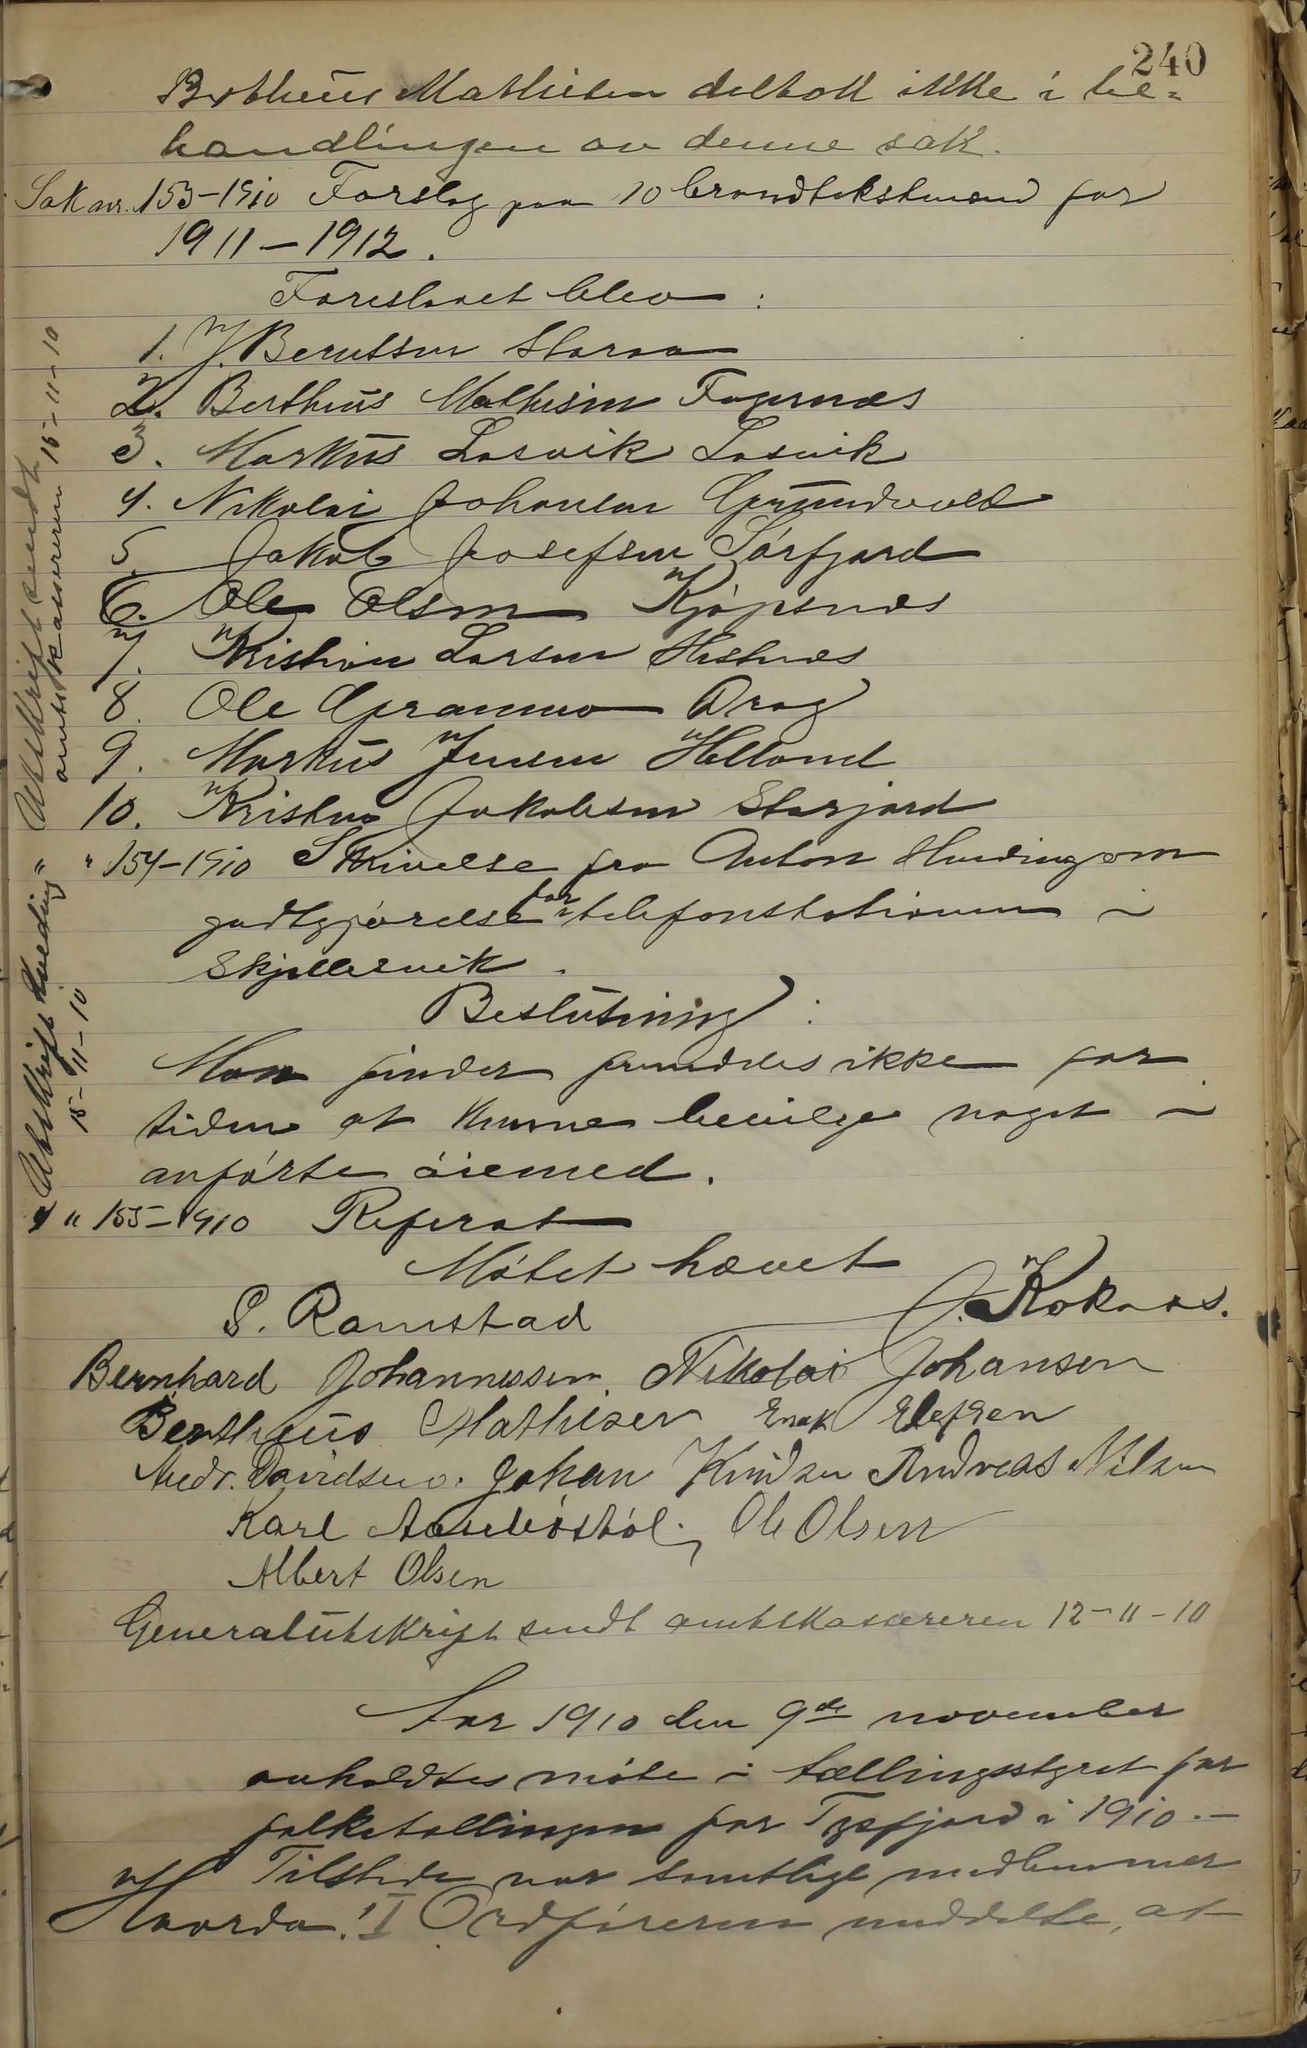 240
Bertheus Mathisen deltok ikke i be-
handlingen av denne sak.
Sak nr. 153-1910 Forslag paa 10 brandtakstmænd for
1911-1912.
Foreslaaet blev:
1. J. Berntsen Storaa
2. Bertheus Mathisen Fagernæs
3. Markus Losvik Losvik
4. Nikolai Johansen Grundvold
5. Jakob Josefsen Sørfjord
6. Ole Olsen Kjøpsnæs
7. Kristian Larsen Hestnæs
8. Ole Grammo Drag
9. Markus Jensen Helland
10. Kristen Jakobsen Storjord
Utskrift sendt
amtskassereren 15-11-10
" " 154-1910 Skrivelse fra Anton Hveding om
godtgjørelse for telefonstationen i
Skjellesvik.
Beslutning:
Man finder fremdeles ikke for
tiden at kunne bevilge noget i
anførte øiemed.
Utskrift Hveding
15-11-10
" " 155-1910 Referat
Møtet hævet
P. Ramstad J. Koknæs.
Bernhard Johannessen. Nikolai Johansen
Bertheus Mathisen Enok Elefsen
Andr. Davidsen. Johan Knudsen Andreas Nilsen
Karl Aandøstøl. Ole Olsen
Albert Olsen
Generalutskrift sendt amtskassereren 12-11-10
Aar 1910 den 9de november
avholdtes møte i tællingsstyret for
folketællingen for Tysfjord i 1910.-
Tilstede var samtlige medlemmer
Hvorda: I Ordføreren meddelte, at